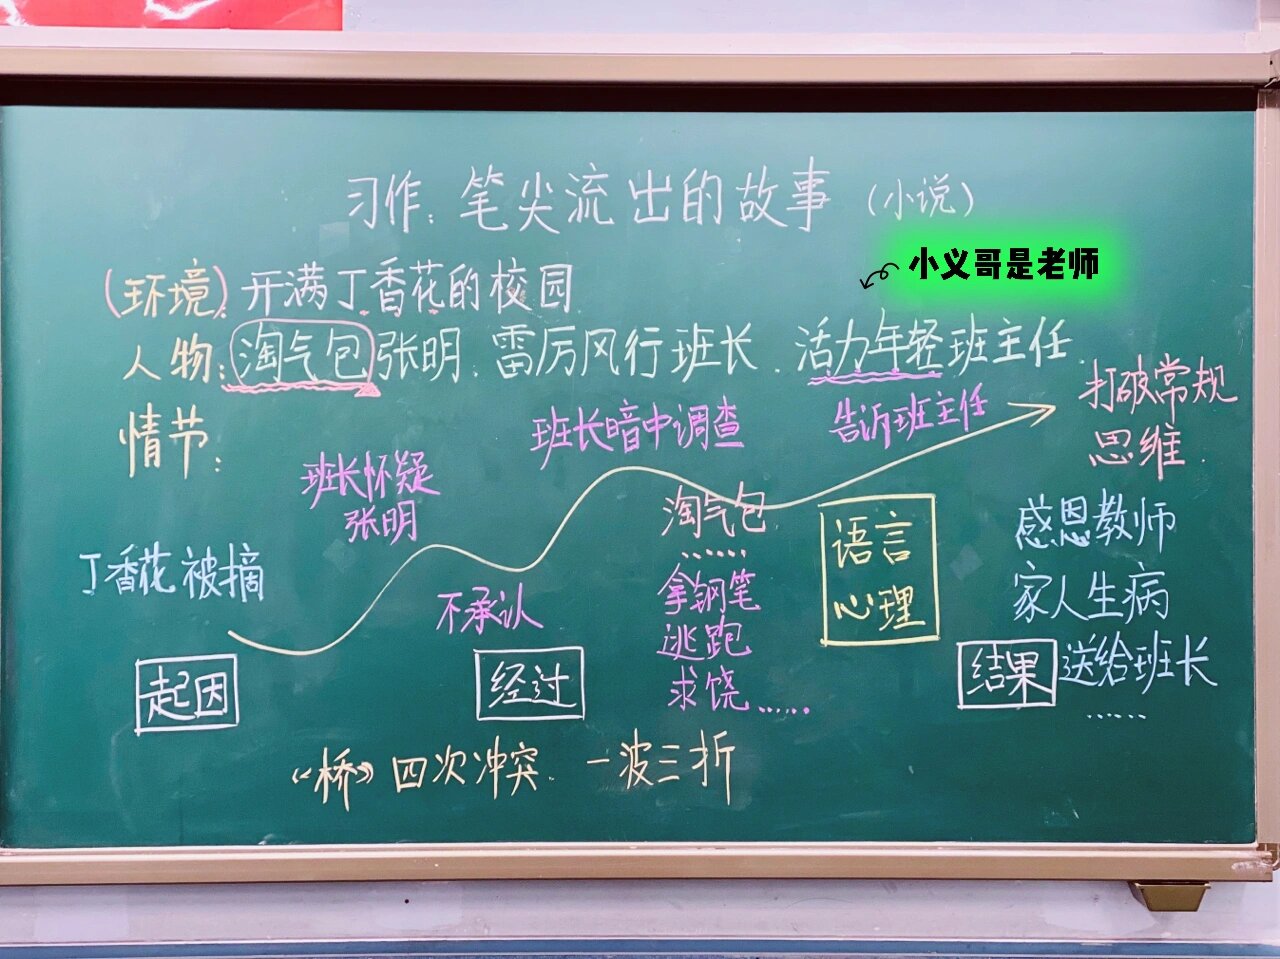 习作：笔尖流出的故事（小说）
小义哥是老师
（环境）开满丁香花的校园
人物：淘气包张明、雷厉风行班长、活力年轻班主任
情节：
打破常规
思维
告诉班主任
班长暗中调查
班长怀疑
张明
丁香花被摘
不承认
淘气包
……
拿钢笔
逃跑
求饶……
语言
心理
感恩教师
家人生病
送给班长
……
起因
经过
结果
《桥》四次冲突、一波三折